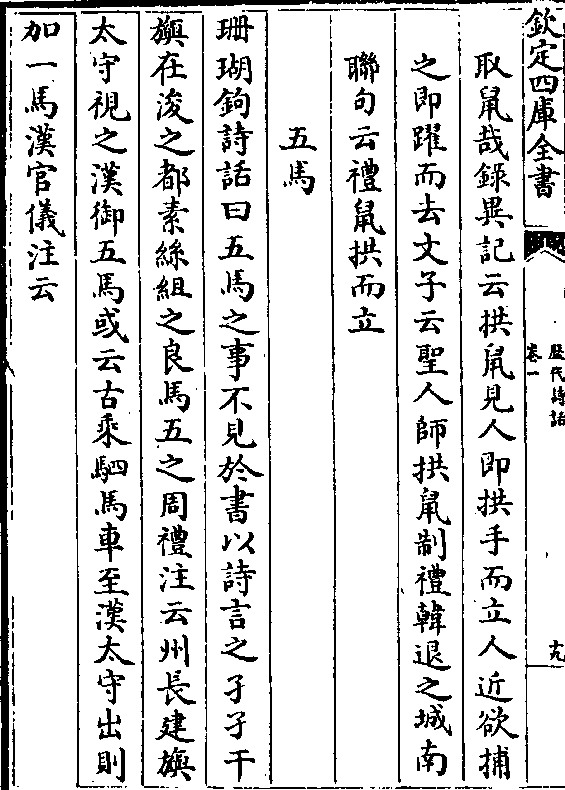 欽定四庫全書
歴代詩話
卷一
十九
取鼠哉錄異記云拱鼠見人即拱手而立人近欲捕
之即躍而去文子云聖人師拱鼠制禮韓退之城南
聯句云禮鼠拱而立
五馬
珊瑚鉤詩話曰五馬之事不見於書以詩言之孑孑干
旟在浚之都素絲組之良馬五之周禮注云州長建旟
太守視之漢御五馬或云古乘駟馬車至漢太守出則
加一馬漢官儀注云